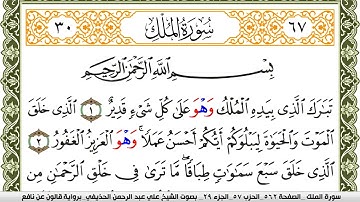 ٣٠ سُورَةُ الْمُلْكِ ٦٧
بِسْمِ اللَّهِ الرَّحْمَٰنِ الرَّحِيمِ
تَبَارَكَ الَّذِي بِيَدِهِ الْمُلْكُ وَهْوَ عَلَىٰ كُلِّ شَيْءٍ قَدِيرٌ ١ الَّذِي خَلَقَ
الْمَوْتَ وَالْحَيَاةَ لِيَبْلُوَكُمْ أَيُّكُمْ أَحْسَنُ عَمَلًا وَهْوَ الْعَزِيزُ الْغَفُورُ ٢
الَّذِي خَلَقَ سَبْعَ سَمَاوَاتٍ طِبَاقًا مَا تَرَىٰ فِي خَلْقِ الرَّحْمَٰنِ مِن
سورة الملك _ الصفحة ٥٦٢_ الحزب ٥٧_ الجزء ٢٩ _ بصوت الشيخ علي عبد الرحمن الحذيفي_ برواية قالون عن نافع